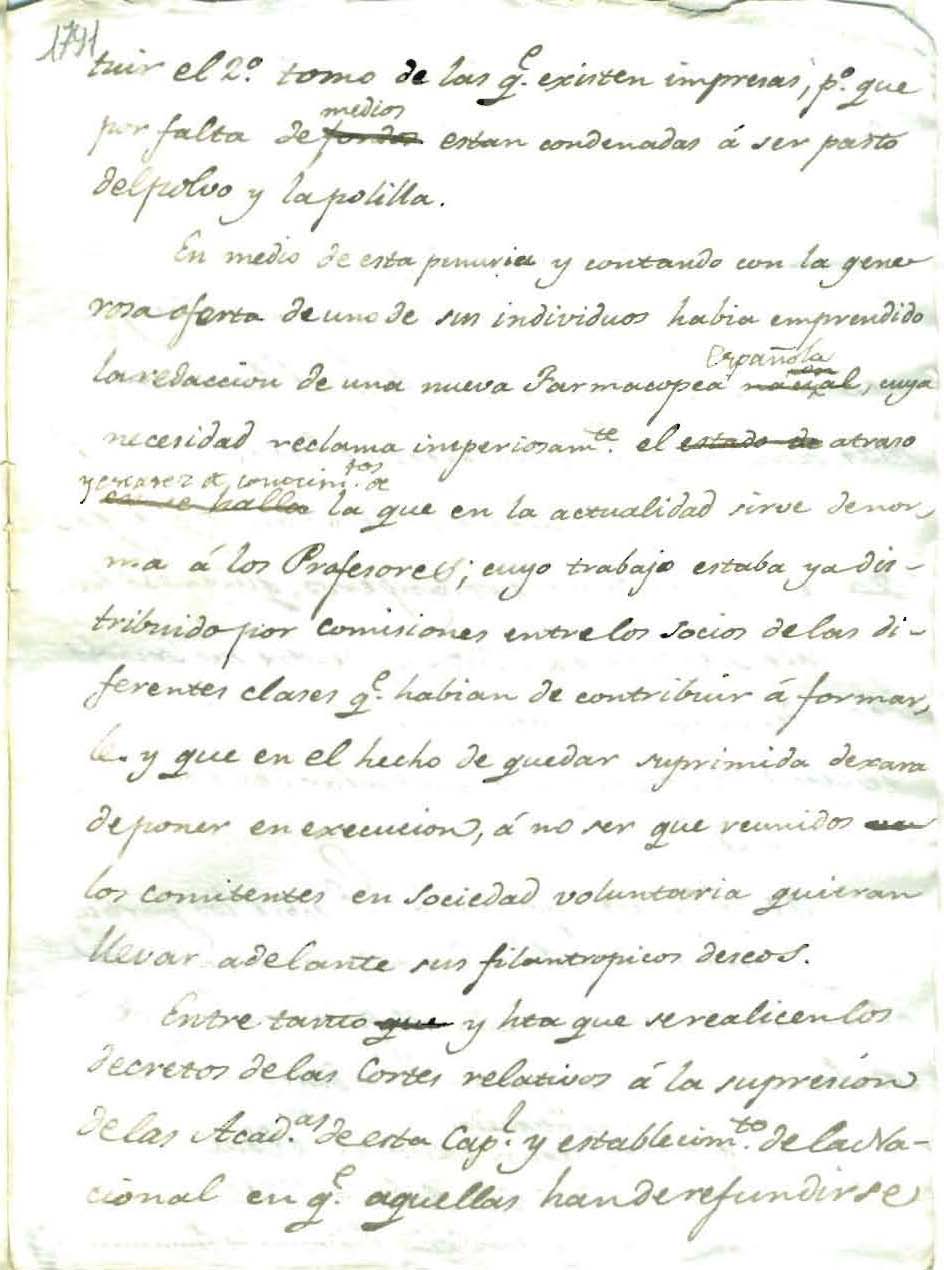 1791
tuir el 2.º tomo de las q.e existen impresas, p.º que
medios
por falta de fondos estan condenadas á ser pasto
del polvo y la polilla.
En medio de esta penuria y contando con la gene-
rosa oferta de uno de sus individuos habia emprendido
Española
la redaccion de una nueva Farmacopea, cuya
necesidad reclama imperiosam.te el estado de atraso
y escasez de conocim.tos de
en se halla la que en la actualidad sirve de nor-
ma á los Profesores; cuyo trabajo estaba ya dis-
tribuido por comisiones entre los socios de las di-
ferentes clases q.e habian de contribuir á formar-
le. y que en el hecho de quedar suprimida dexara
de poner en execucion, á no ser que reunidos
los comitentes en sociedad voluntaria quieran
llevar adelante sus filantropicos deseos.
Entre tanto que y hta que se realicen los
decretos de las Cortes relativos á la supresion
de las Acad.as de esta Cap.l y establecim.to de la Na-
cional en q.e aquellas han de refundirse